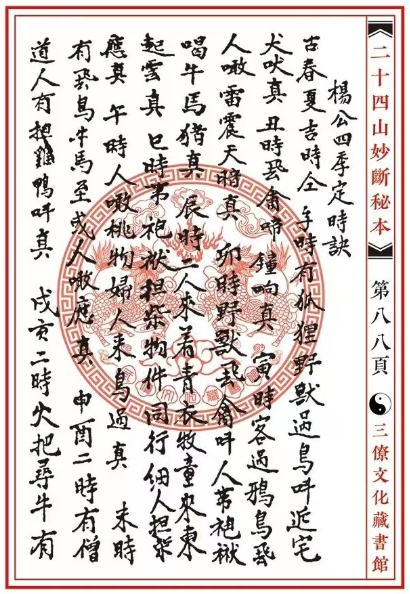 二十四山妙斷秘本
第八八頁
三僚文化藏書館
楊公四季定時訣
古春夏吉時仝 子時有狐狸野獸過鳥叫近宅
犬吠真 丑時飛禽啼 鐘响真 寅時客過鴉鳥飛
人噉雷震天將真 卯時野獸飛禽叫人帶袍袱
唱牛馬猪真 辰時二人來着青衣牧童來東
起雲真 巳時帶袍袱担柴物件同行細人担柴
應真 午時人噉桃物婦人來鳥過真 未時
有飛鳥牛馬至或人噉應真 申酉二時有僧
道人有把雞鴨叫真 戌亥二時火把尋牛有